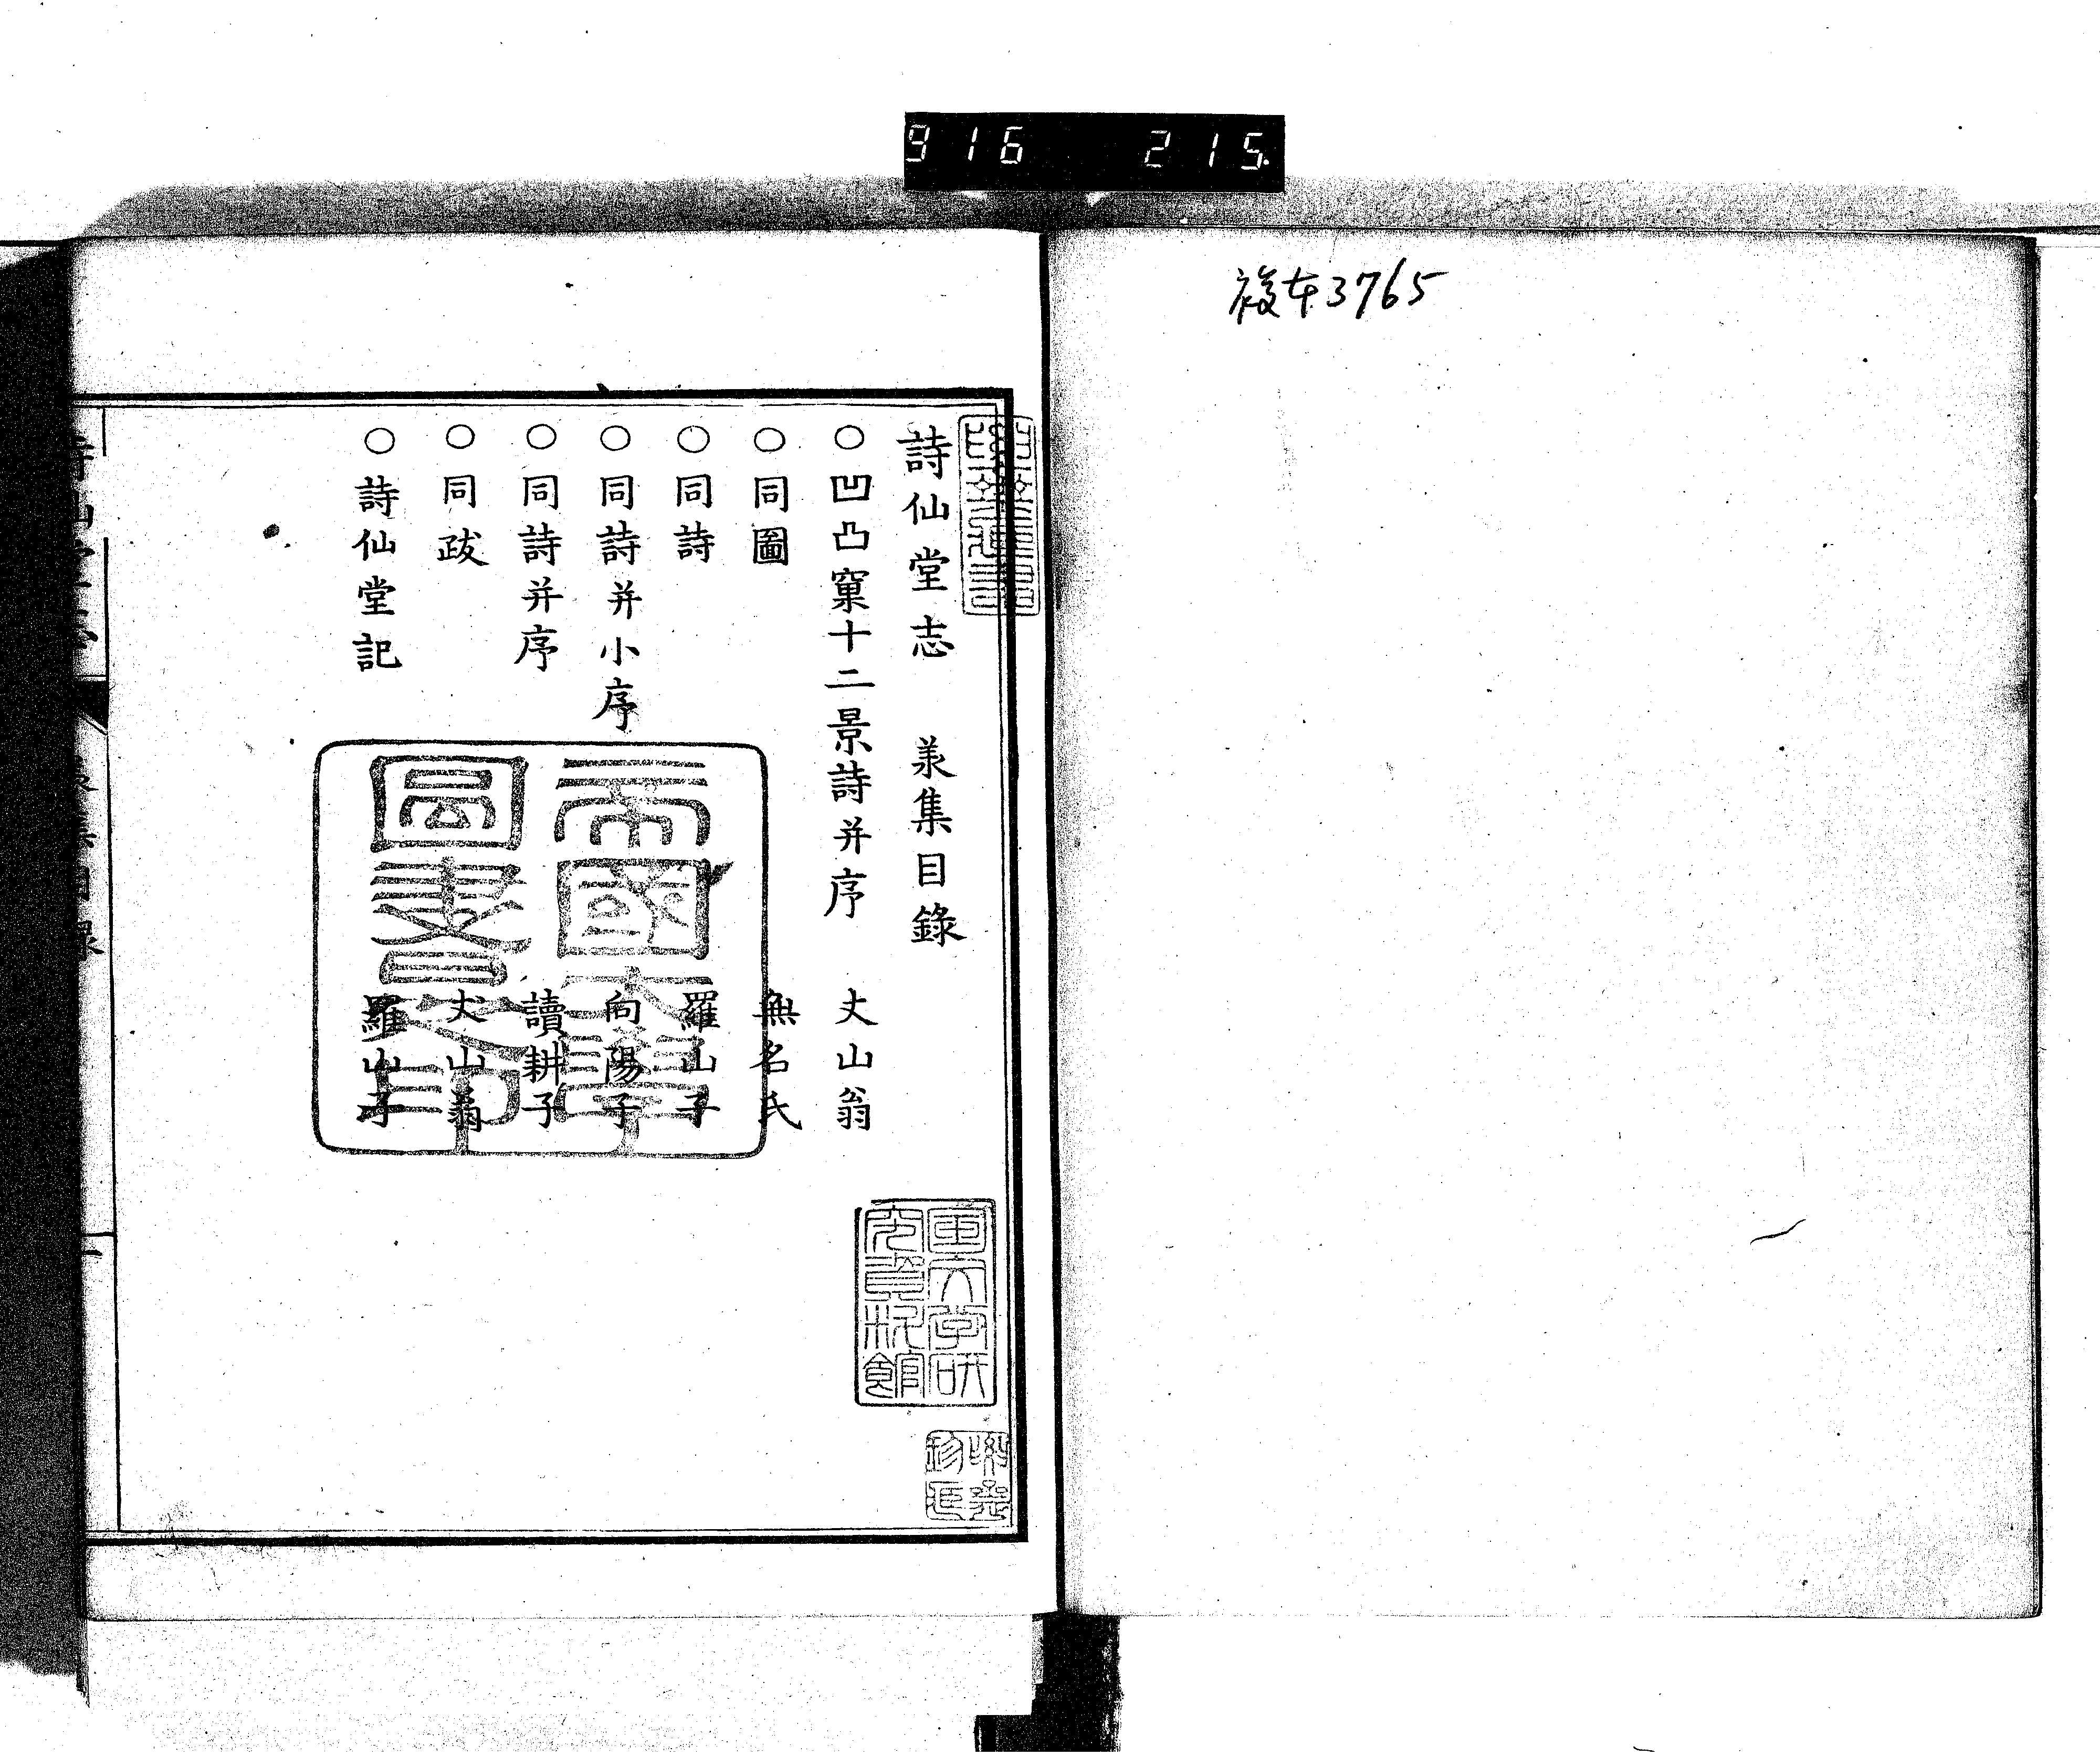 916 215
複本3765
詩仙堂志 羕集目錄
○凹凸窠十二景詩并序 丈山翁
○同圖 無名氏
○同詩 羅山子
○同詩并小序 向陽子
○同詩并序 讀耕子
○同跋 丈山翁
○詩仙堂記 羅山子
帝國大學
圖書之印
国文学研
究資料館